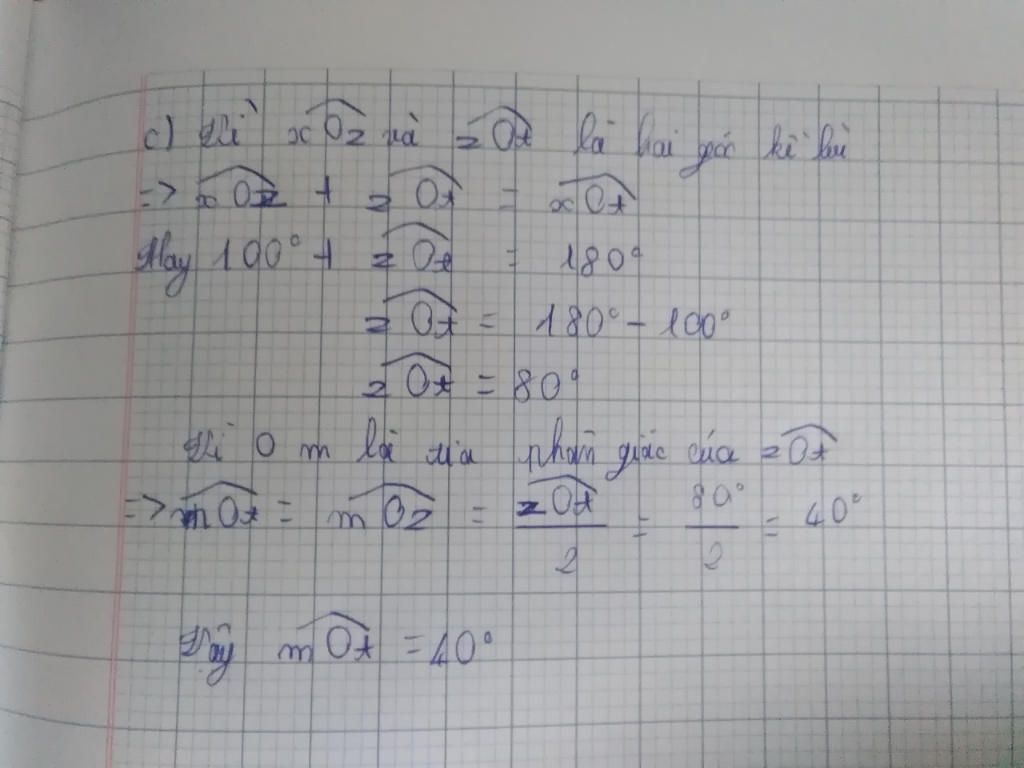 c) Vì xOz và zOt là hai góc kề bù
=> xOz + zOt = xOt
Hay 100° + zOt = 180°
zOt = 180° - 100°
zOt = 80°
Vì Om là tia phân giác của zOt
=> mOt = mOz = zOt/2 = 80°/2 = 40°
Vậy mOt = 40°